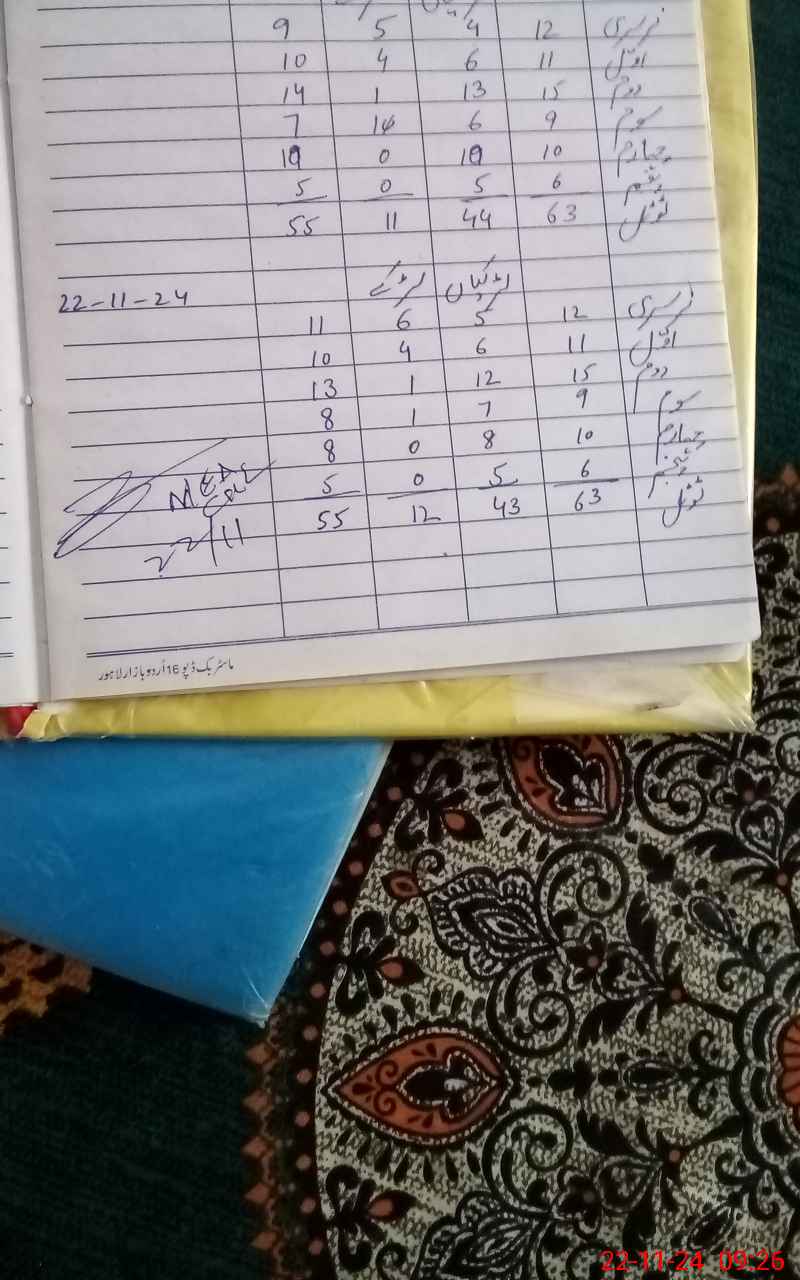 نرسری 12 4 5 9
اول 11 6 4 10
دوم 15 13 1 14
سوم 9 6 1 7
چہارم 10 10 0 10
پنجم 6 5 0 5
ٹوٹل 63 44 11 55
لڑکیاں لڑکے
22-11-24
نرسری 12 5 6 11
اول 11 6 4 10
دوم 15 12 1 13
سوم 9 7 1 8
چہارم 10 8 0 8
پنجم 6 5 0 5
ٹوٹل 63 43 12 55
22/11
ماسٹر بک ڈپو 16 اُردو بازار لاہور
22-11-24 09:26